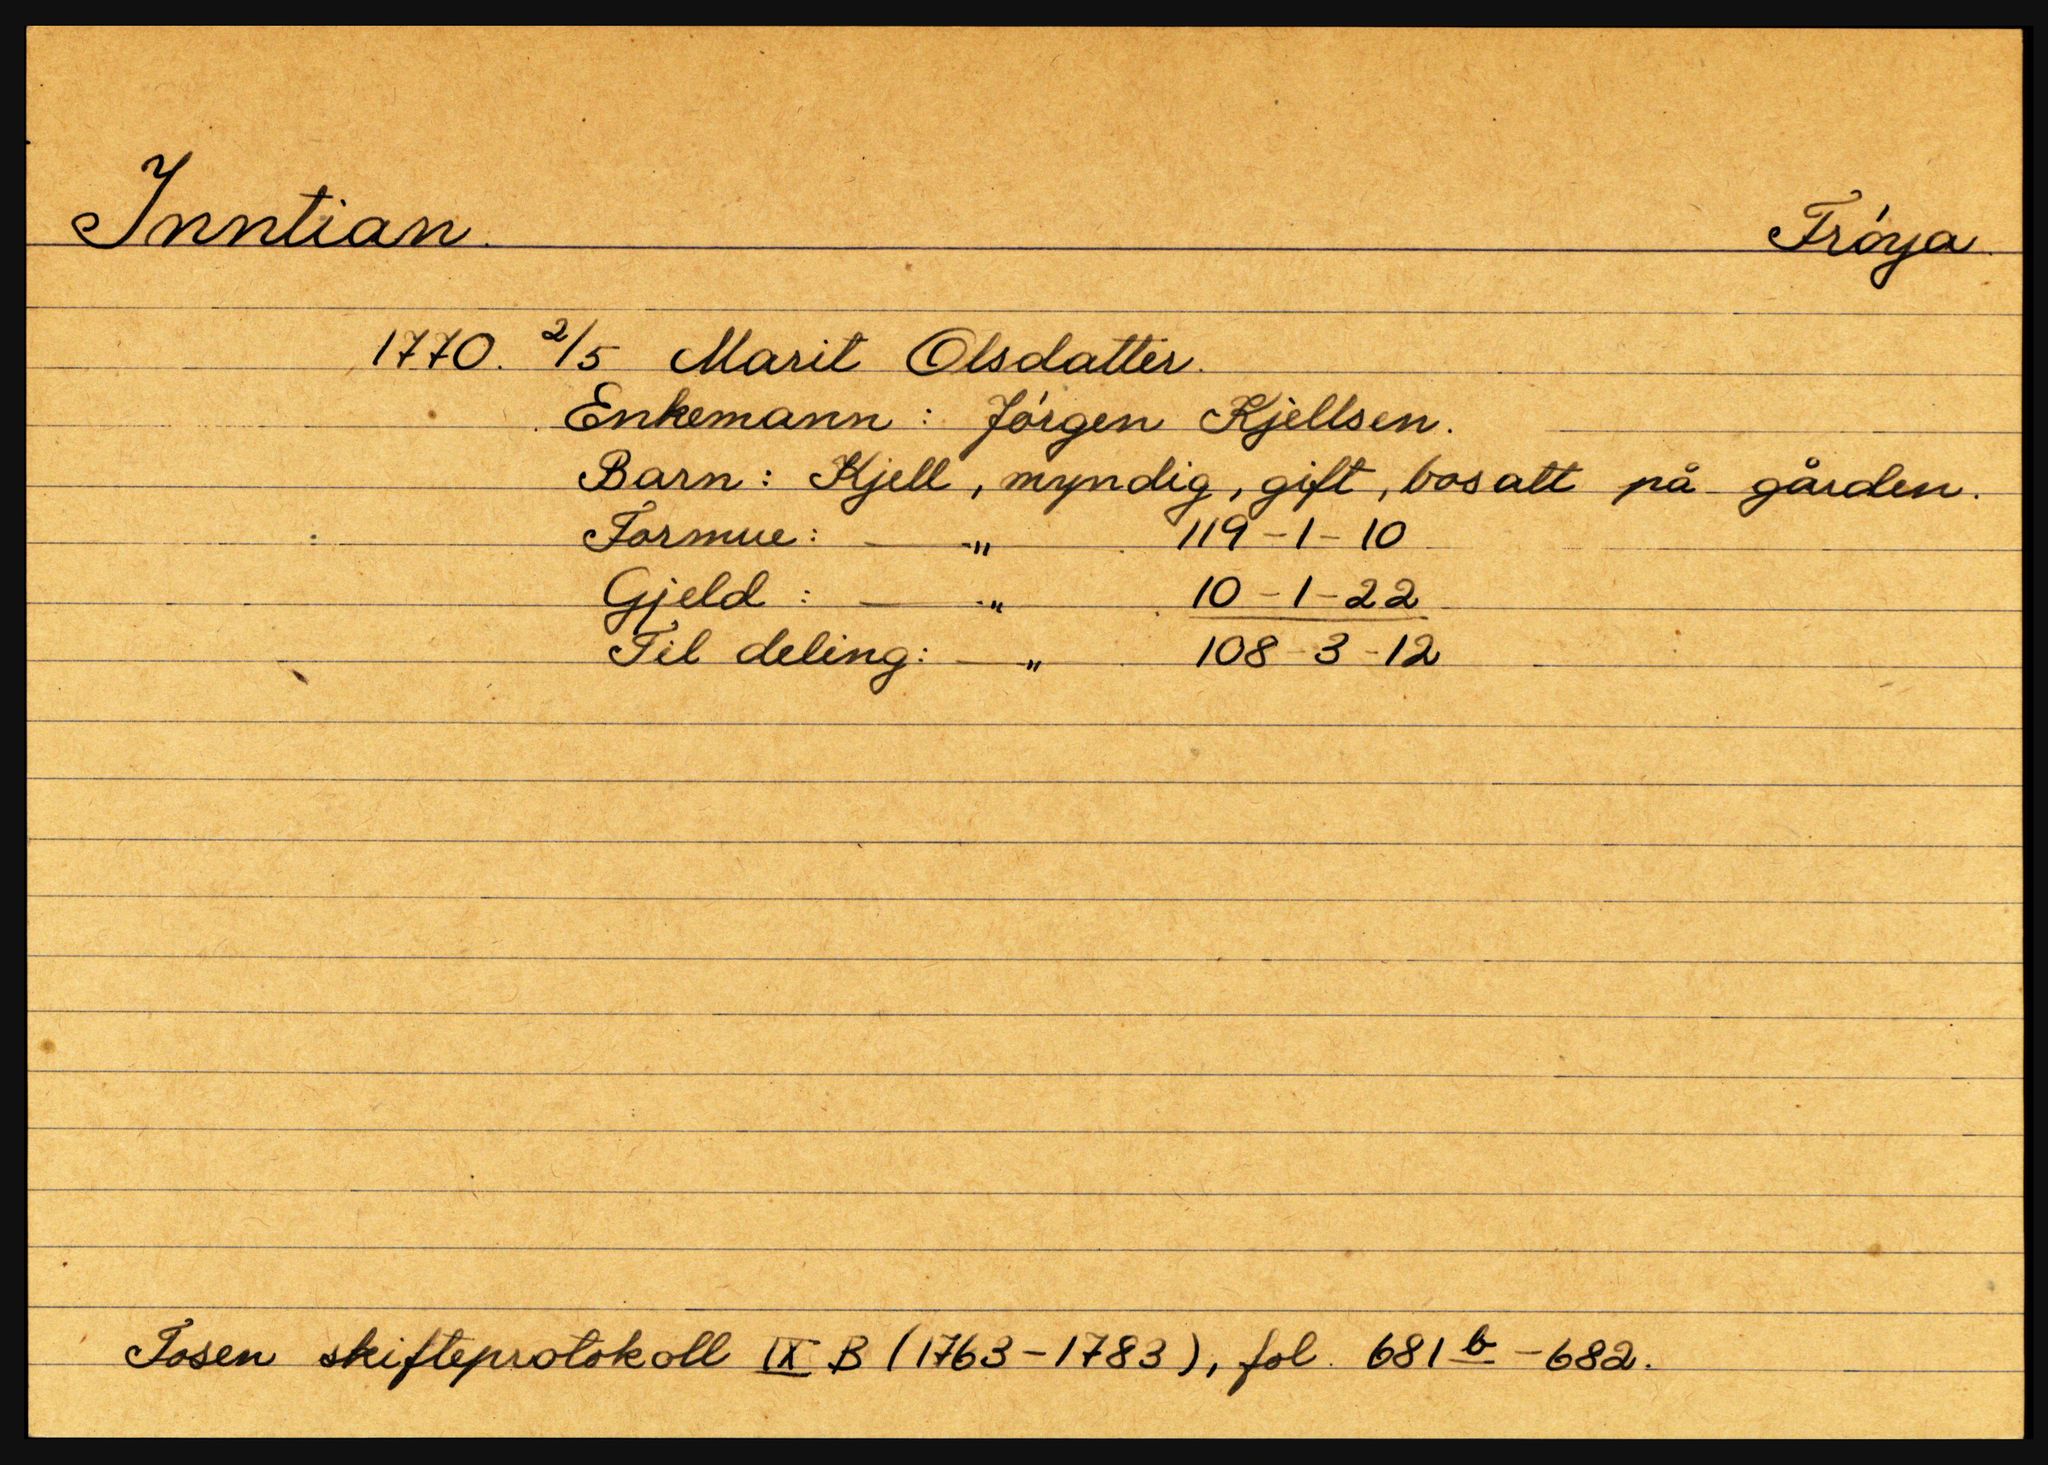 Inntian. Frøya.
1770. 2/5 Marit Olsdatter.
Enkemann: Jørgen Kjellsen.
Barn: Kjell, myndig, gift, bosatt på gården.
Formue: — " 119-1-10
Gjeld: — " 10-1-22
Til deling: — " 108-3-12
Fosen skifteprotokoll IX B (1763-1783), fol. 681 b - 682.